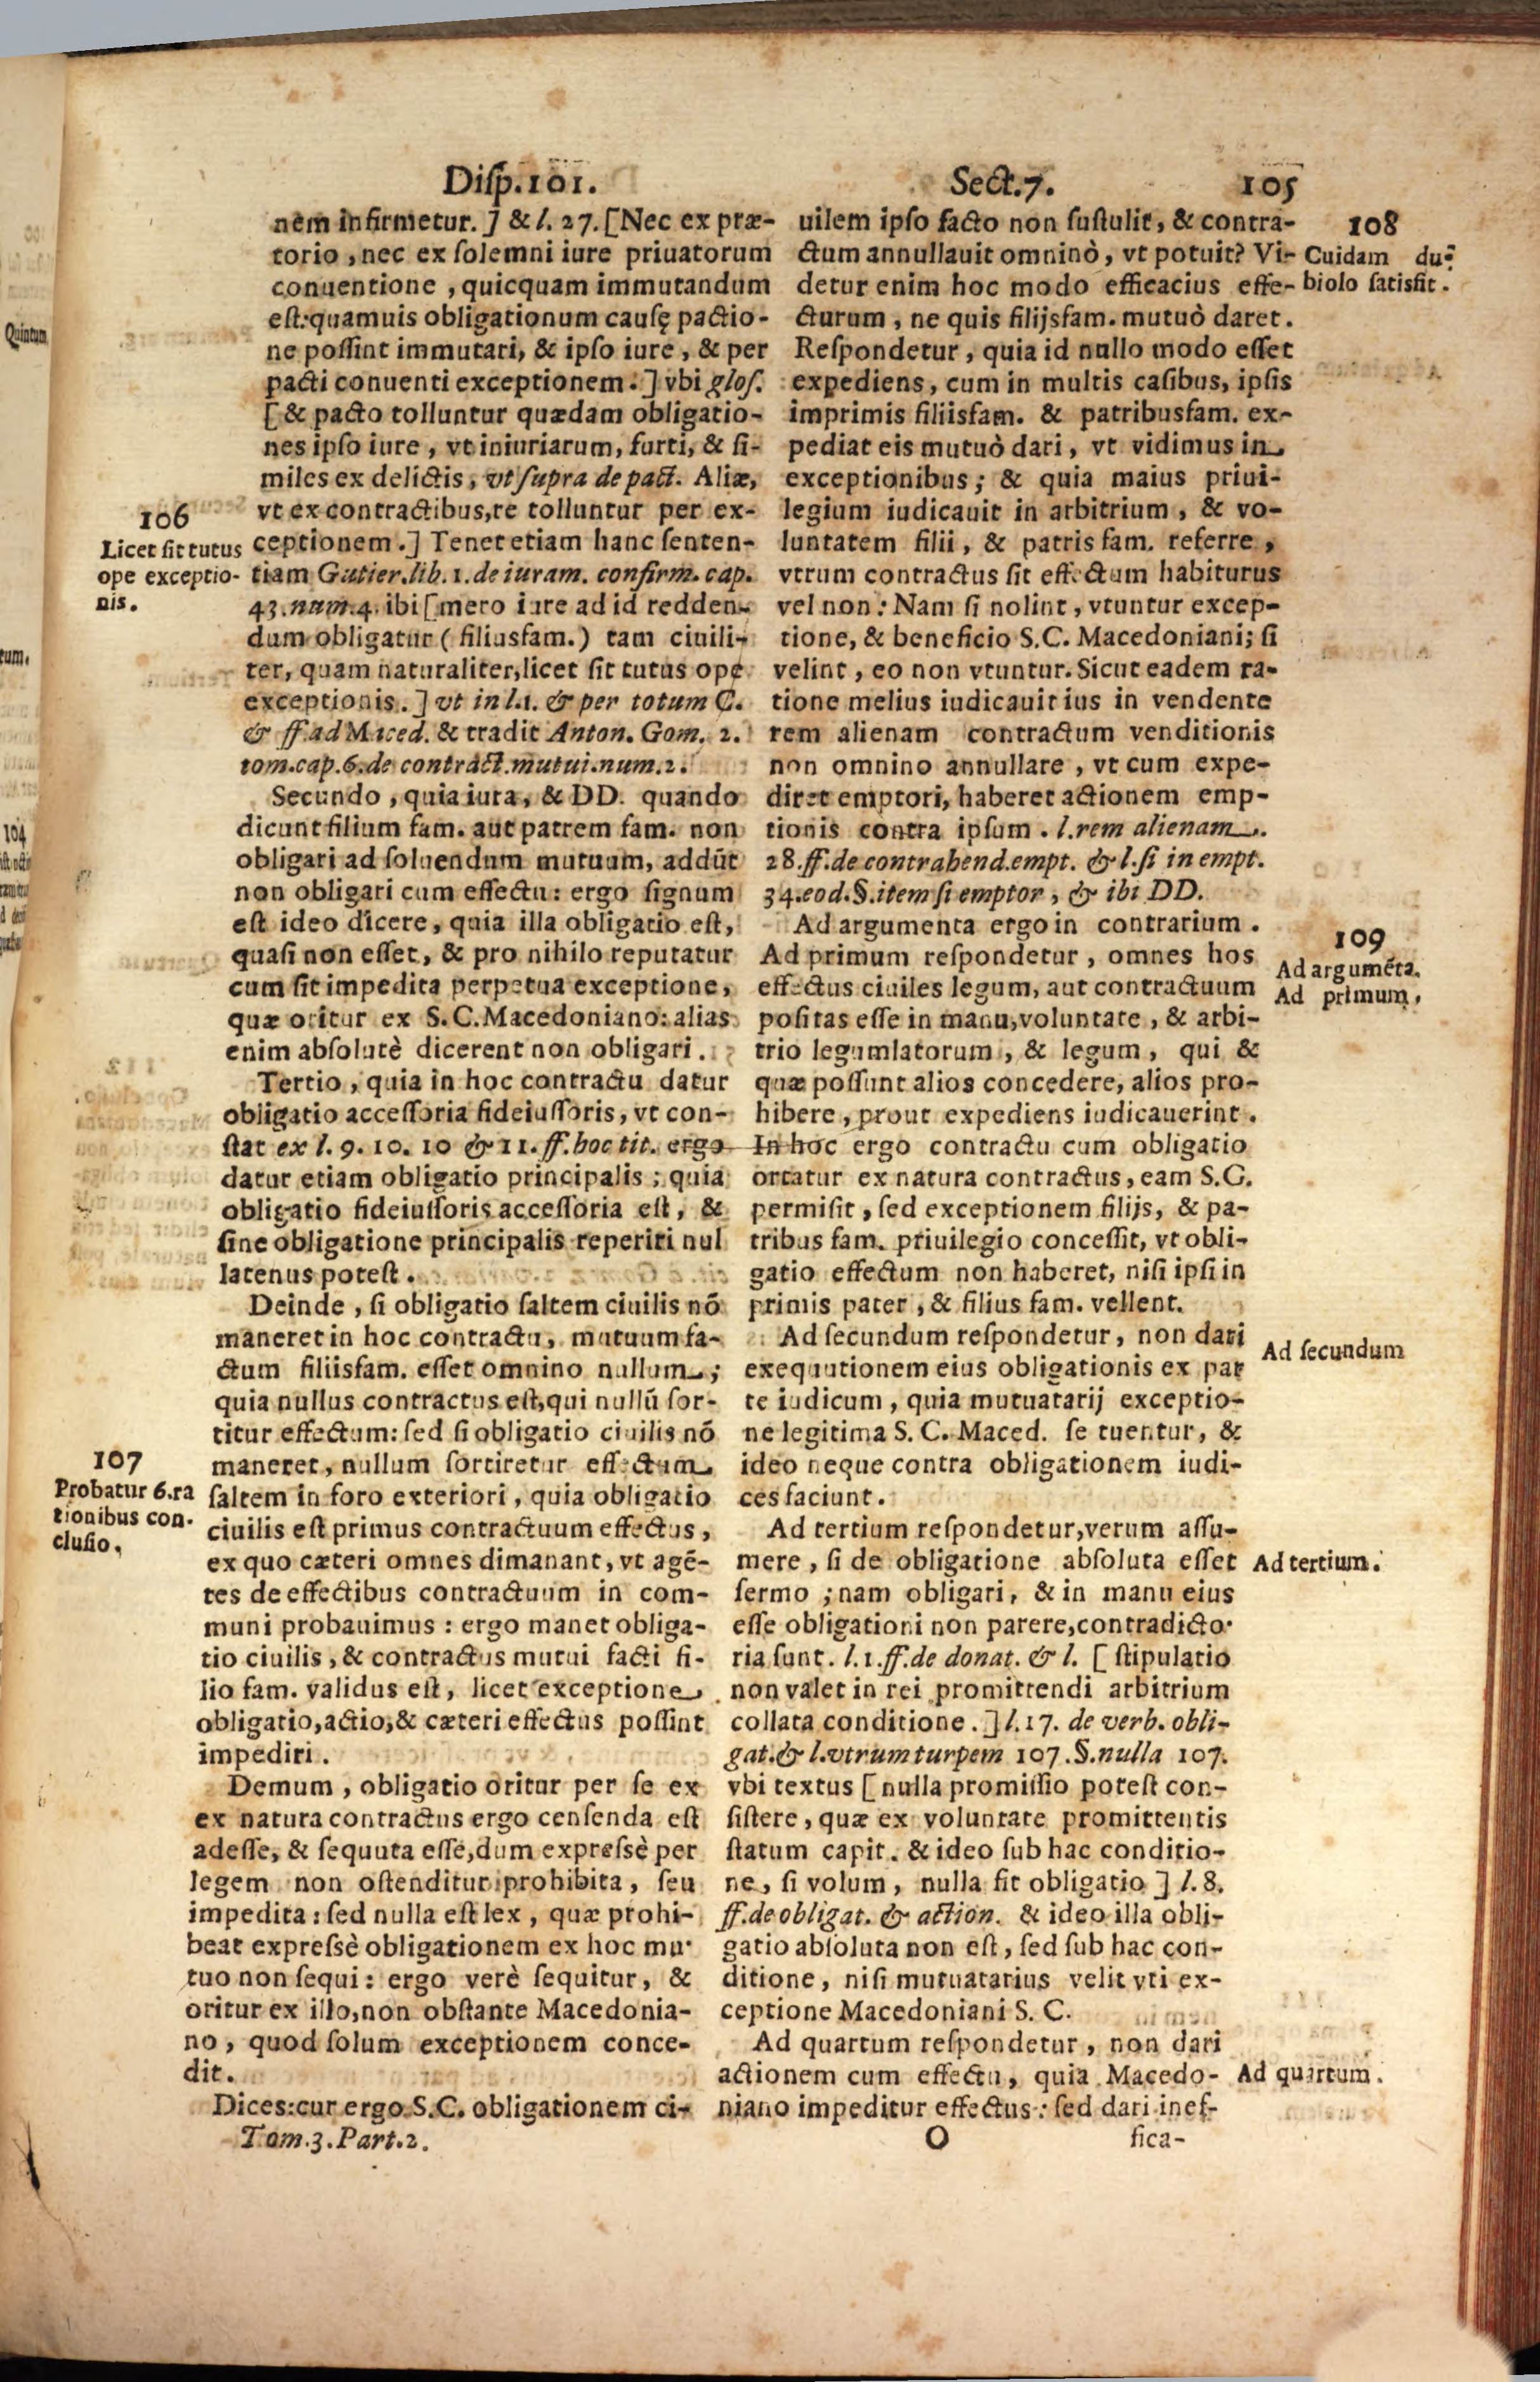 Disp.101. Sect.7. 105
nem infirmetur. ] & l. 27. [Nec ex præ-
torio, nec ex solemni iure priuatorum
conuentione, quicquam immutandum
est: quamuis obligationum causę pactio-
ne possint immutari, & ipso iure, & per
pacti conuenti exceptionem.] vbi glos.
[& pacto tolluntur quædam obligatio-
nes ipso iure, vt iniuriarum, furti, & si-
miles ex delictis, vt supra de pact. Aliæ,
vt ex contractibus, re tolluntur per ex-
ceptionem.] Tenet etiam hanc senten-
tiam Gutier. lib. 1. de iuram. confirm. cap.
43. num. 4. ibi [mero iure ad id redden-
dum obligatur (filiusfam.) tam ciuili-
ter, quam naturaliter, licet sit tutus ope
exceptionis.] vt in l. 1. & per totum C.
& ff. ad Maced. & tradit Anton. Gom. 2.
tom. cap. 6. de contract. mutui. num. 2.
Secundo, quia iura, & DD. quando
dicunt filium fam. aut patrem fam. non
obligari ad soluendum mutuum, addũt
non obligari cum effectu: ergo signum
est ideo dicere, quia illa obligatio est,
quasi non esset, & pro nihilo reputatur
cum sit impedita perpetua exceptione,
quæ oritur ex S.C. Macedoniano: alias
enim absolutè dicerent non obligari.
Tertio, quia in hoc contractu datur
obligatio accessoria fideiussoris, vt con-
stat ex l. 9. 10. 10 & 11. ff. hoc tit. ergo
datur etiam obligatio principalis; quia
obligatio fideiussoris accessoria est, &
sine obligatione principalis reperiri nul
latenus potest.
Deinde, si obligatio saltem ciuilis nõ
maneret in hoc contractu, mutuum fa-
ctum filiisfam. esset omnino nullum;
quia nullus contractus est, qui nullũ sor-
titur effectum: sed si obligatio ciuilis nõ
maneret, nullum sortiretur effectum
saltem in foro exteriori, quia obligatio
ciuilis est primus contractuum effectus,
ex quo cæteri omnes dimanant, vt agẽ-
tes de effectibus contractuum in com-
muni probauimus: ergo manet obliga-
tio ciuilis, & contractus mutui facti fi-
lio fam. validus est, licet exceptione
obligatio, actio, & cæteri effectus possint
impediri.
Demum, obligatio oritur per se ex
ex natura contractus ergo censenda est
adesse, & sequuta esse, dum expressè per
legem non ostenditur prohibita, seu
impedita: sed nulla est lex, quæ prohi-
beat expressè obligationem ex hoc mu-
tuo non sequi: ergo verè sequitur, &
oritur ex illo, non obstante Macedonia-
no, quod solum exceptionem conce-
dit.
Dices: cur ergo S.C. obligationem ci-
Tom. 3. Part. 2.
106
Licet sit tutus
ope exceptio-
nis.
107
Probatur 6. ra
tionibus con-
clusio.
uilem ipso facto non sustulit, & contra-
ctum annullauit omninò, vt potuit? Vi-
detur enim hoc modo efficacius effe-
cturum, ne quis filijsfam. mutuò daret.
Respondetur, quia id nullo modo esset
expediens, cum in multis casibus, ipsis
imprimis filiisfam. & patribusfam. ex-
pediat eis mutuò dari, vt vidimus in
exceptionibus; & quia maius priui-
legium iudicauit in arbitrium, & vo-
luntatem filii, & patris fam. referre,
vtrum contractus sit effectum habiturus
vel non: Nam si nolint, vtuntur excep-
tione, & beneficio S.C. Macedoniani; si
velint, eo non vtuntur. Sicut eadem ra-
tione melius iudicauit ius in vendente
rem alienam contractum venditionis
non omnino annullare, vt cum expe-
diret emptori, haberet actionem emp-
tionis contra ipsum. l. rem alienam.
28. ff. de contrahend. empt. & l. si in empt.
34. eod. §. item si emptor, & ibi DD.
Ad argumenta ergo in contrarium.
Ad primum respondetur, omnes hos
effectus ciuiles legum, aut contractuum
positas esse in manu, voluntate, & arbi-
trio legumlatorum, & legum, qui &
quæ possunt alios concedere, alios pro-
hibere, prout expediens iudicauerint.
In hoc ergo contractu cum obligatio
ortatur ex natura contractus, eam S.C.
permisit, sed exceptionem filijs, & pa-
tribus fam. priuilegio concessit, vt obli-
gatio effectum non haberet, nisi ipsi in
primis pater, & filius fam. vellent.
Ad secundum respondetur, non dari
exequutionem eius obligationis ex par
te iudicum, quia mutuatarij exceptio-
ne legitima S.C. Maced. se tuentur, &
ideo neque contra obligationem iudi-
ces faciunt.
Ad tertium respondetur, verum assu-
mere, si de obligatione absoluta esset
sermo; nam obligari, & in manu eius
esse obligationi non parere, contradicto-
ria sunt. l. 1. ff. de donat. & l. [stipulatio
non valet in rei promittendi arbitrium
collata conditione.] l. 17. de verb. obli-
gat. & l. vtrum turpem 107. §. nulla 107.
vbi textus [nulla promissio potest con-
sistere, quæ ex voluntate promittentis
statum capit. & ideo sub hac conditio-
ne, si volum, nulla fit obligatio] l. 8.
ff. de obligat. & action. & ideo illa obli-
gatio absoluta non est, sed sub hac con-
ditione, nisi mutuatarius velit vti ex-
ceptione Macedoniani S. C.
Ad quartum respondetur, non dari
actionem cum effectu, quia Macedo-
niano impeditur effectus: sed dari inef-
O fica-
108
Cuidam du-
biolo satisfit.
109
Ad argumẽta.
Ad primum.
Ad secundum
Ad tertium.
Ad quartum.